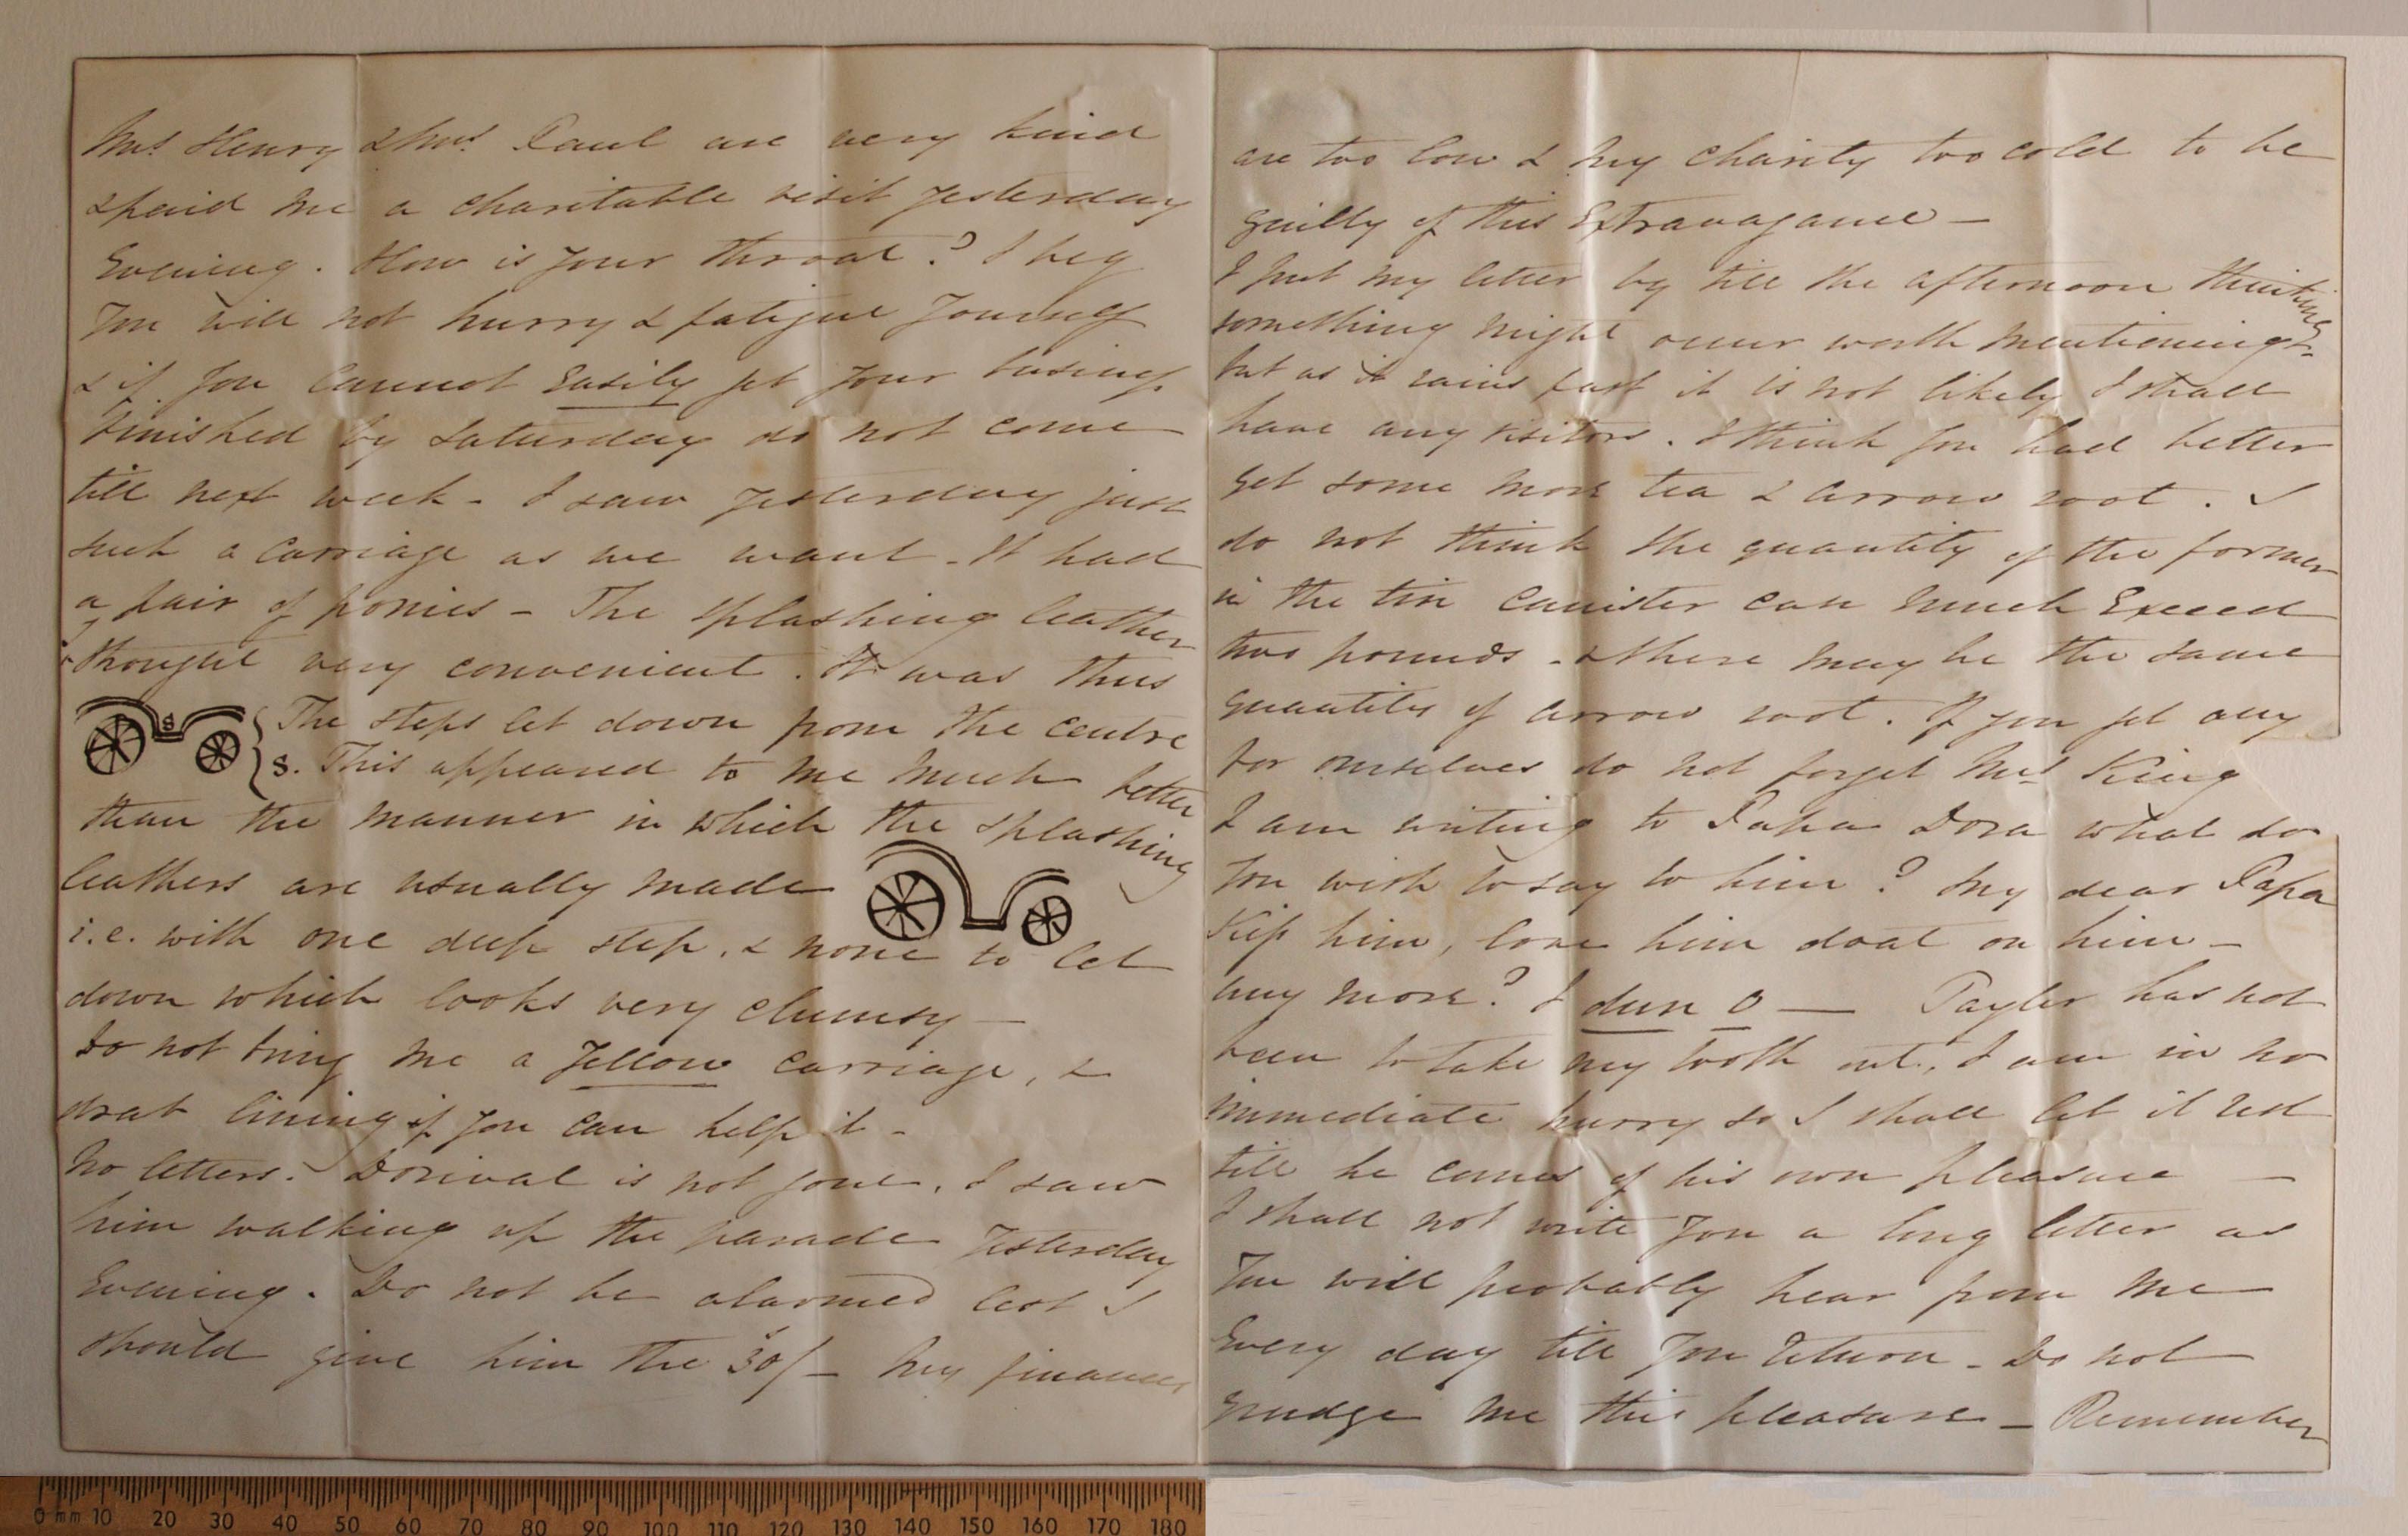 Mrs. Henry & Mrs. Paul are very kind
& paid me a charitable visit yesterday
Evening. How is your throat? I beg
you will not hurry & fatigue yourself
& if you cannot easily get your business
finished by Saturday do not come
till next week - I saw yesterday just
such a carriage as we want - It had
a pair of ponies - The splashing leather
I thought very convenient. It was thus
s { The steps let down from the centre
s. This appeared to me much better
than the manner in which the splashing
leathers are usually made
i.e. with one deep step, & none to let
down which looks very clumsy -
Do not bring me a yellow carriage, &
drab lining if you can help it -
No letters. Dorival is not gone, I saw
him walking up the parade yesterday
Evening. Do not be alarmed lest I
should give him the 30/- my finances
are too low & my charity too cold to be
guilty of this Extravagance -
I put my letter by till the afternoon thinking
something might occur worth mentioning -
but as it rains fast it is not likely I shall
have any visitors. I think you had better
get some more tea & arrow root. I
do not think the quantity of the former
in the tin canister can much Exceed
two pounds - & there may be the same
quantity of arrow root. If you get any
for ourselves do not forget Mrs. King
I am writing to Papa Dora what do
you wish to say to him? My dear Papa
Kiss him, love him doat on him -
any more? I dun o - Tayler has not
been to take my tooth out, I am in no
immediate hurry so I shall let it rest
till he comes of his own pleasure -
I shall not write you a long letter as
You will probably hear from me
Every day till you return - Do not
grudge me this pleasure - Remember
0 mm 10 20 30 40 50 60 70 80 90 100 110 120 130 140 150 160 170 180